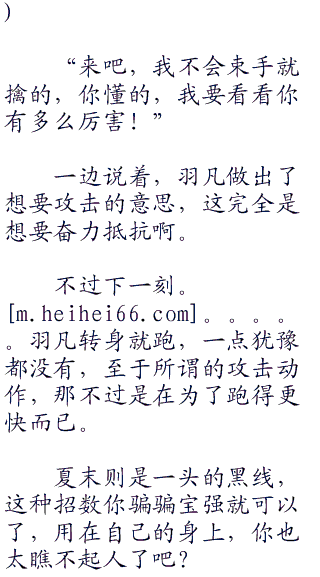 )
“来吧，我不会束手就
擒的，你懂的，我要看看你
有多么厉害！”
一边说着，羽凡做出了
想要攻击的意思，这完全是
想要奋力抵抗啊。
不过下一刻。
[m.heihei66.com]。。。。
。羽凡转身就跑，一点犹豫
都没有，至于所谓的攻击动
作，那不过是在为了跑得更
快而已。
夏末则是一头的黑线，
这种招数你骗骗宝强就可以
了，用在自己的身上，你也
太瞧不起人了吧？